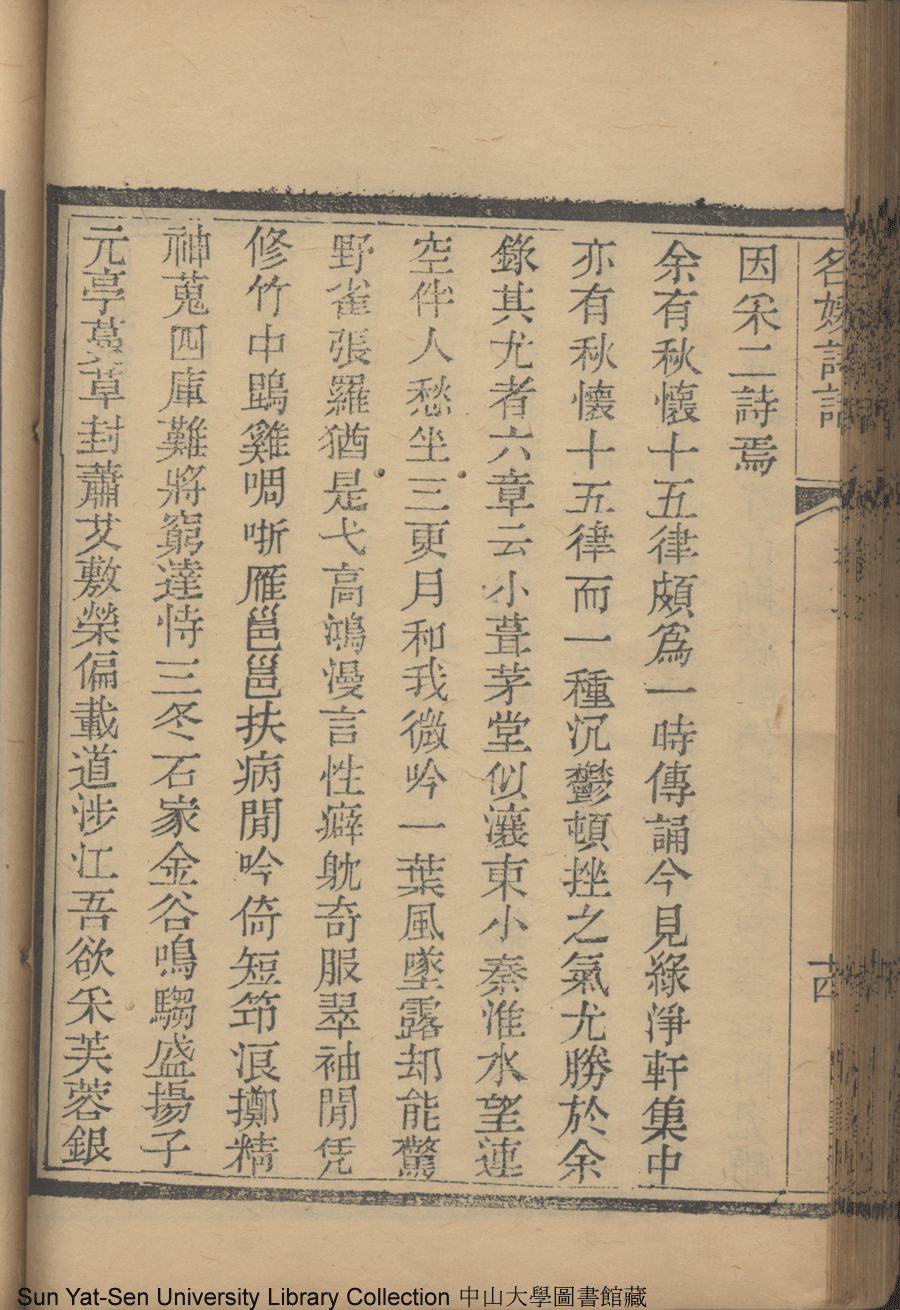 名媛詩話
十四
因采二詩焉
余有秋懷十五律頗為一時傳誦今見綠淨軒集中
亦有秋懷十五律而一種沉鬱頓挫之氣尤勝於余
錄其尤者六章云小葺茅堂似瀼東小秦淮水望連
空伴人愁坐三更月和我微吟一葉風墜露却能驚
野雀張羅猶是弋高鴻漫言性癖躭奇服翠袖閒凭
修竹中鵾雞啁哳雁邕邕扶病閒吟倚短笻浪擲精
神蒐四庫難將窮達恃三冬石家金谷鳴騶盛揚子
元亭蔓草封蕭艾敷榮偏載道涉江吾欲采芙蓉銀
Sun Yat-Sen University Library Collection 中山大學圖書館藏